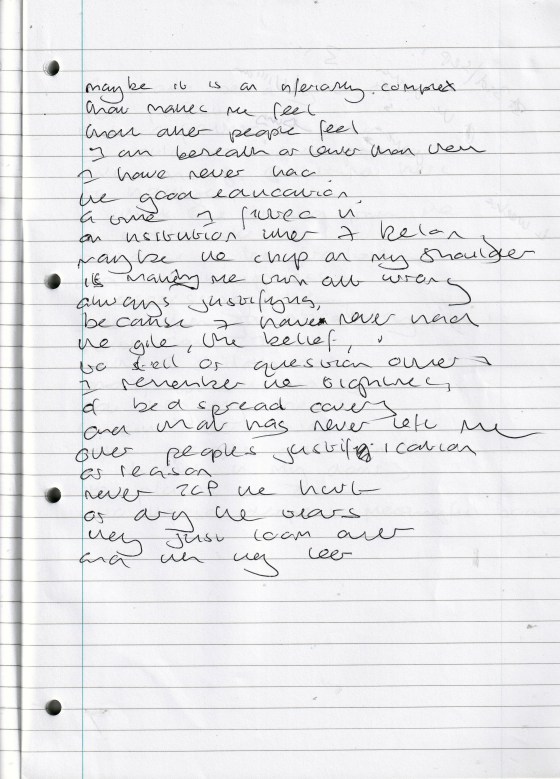 maybe it is an inferiority complex
that makes me feel
that other people feel
I am beneath or lower than them
I have never had
the good education,
a time I fitted in
an institution where I belon
maybe the chip on my shoulder
is making me turn out wrong
always justifying,
because I have never had
the , the belief,
to tell or question other
I remember the
of bed spread covers
and that has never left me
other peoples justification
or reason
never TCP the hurt
or dry the tears
they just loom over
and then they leer